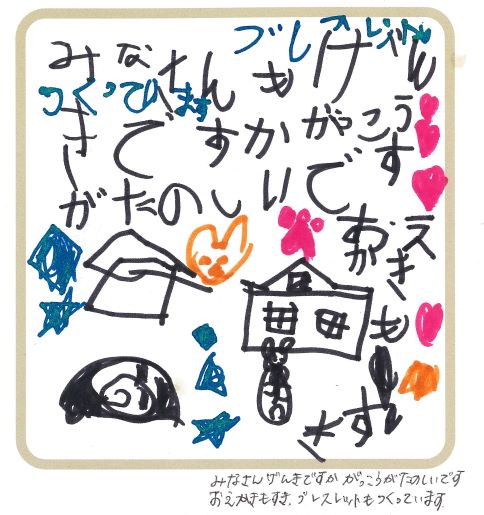 みなさんもげん
きですかがっこう
がたのしいです
おえかきも
すき
ブレスレット
つくっています
みなさんげんきですか がっこうがたのしいです
おえかきもすき。ブレスレットもつくっています